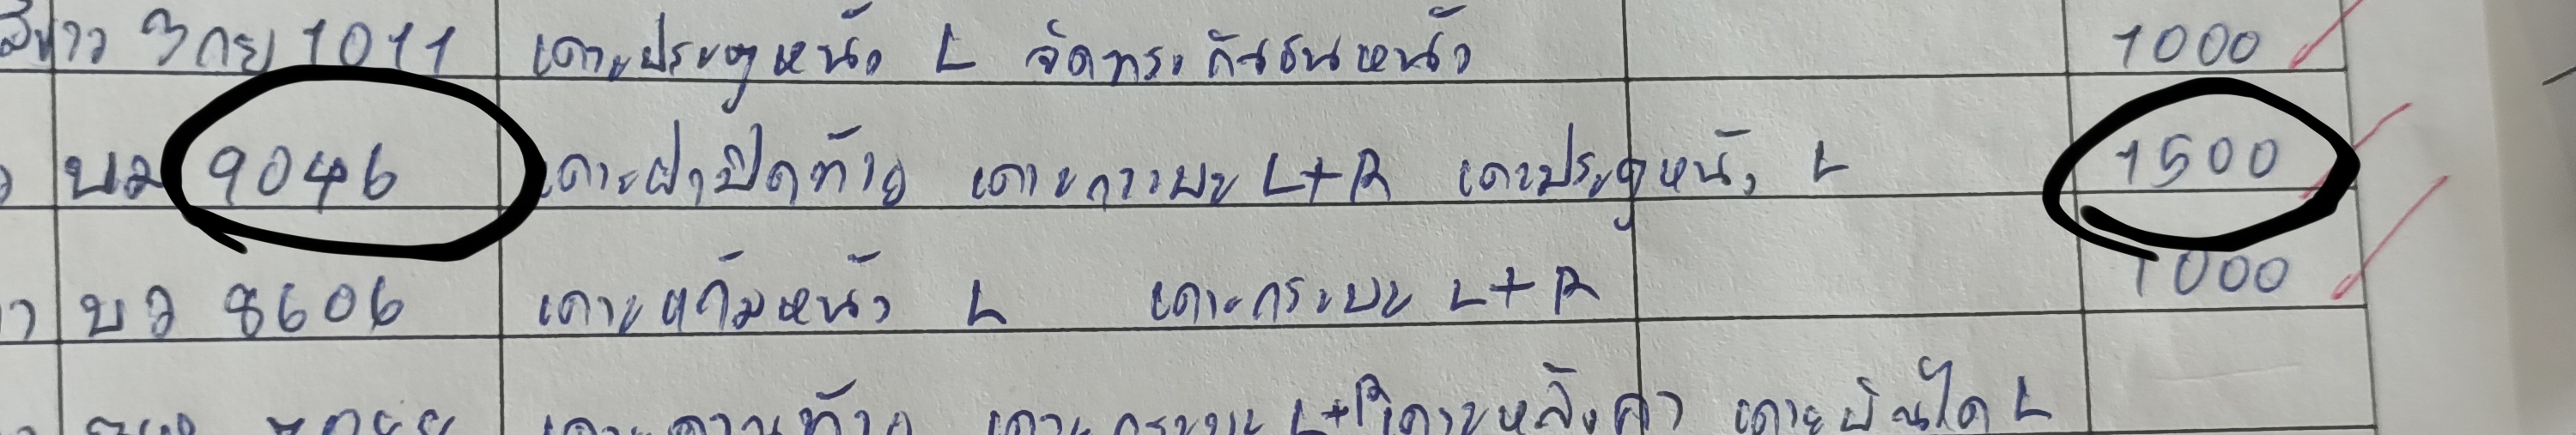 สีขาว 3กย 1011 เคาะประตูหน้า L จัดทรงกันชนหน้า 1000
บม 9046 เคาะฝาปิดท้าย เคาะกระบะ L+R เคาะประตูหน้า L 1500
า บว 8606 เคาะแก้มหน้า L เคาะกระบะ L+R 1000
ท้าย เคาะกระบะ L+R เคาะหลังคา เคาะบันได L